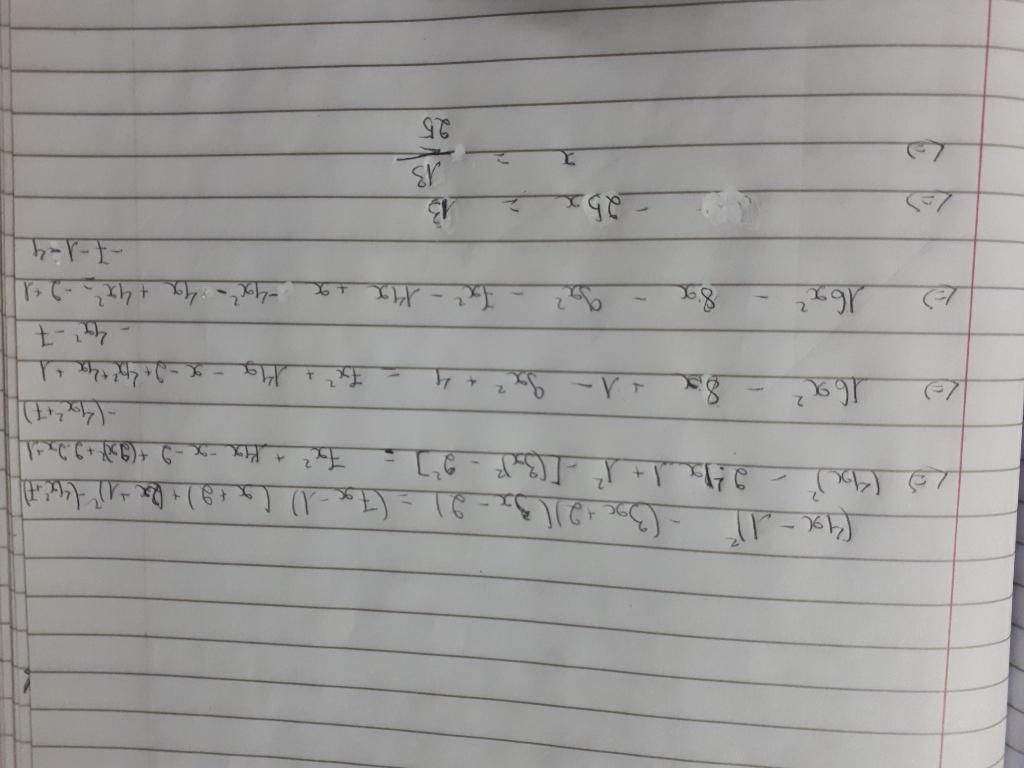 (4x - 1)² - (3x + 2)(3x - 2) = (7x - 1)(x + 2) + (2x + 1)² - (4x² + 7)
<=> (4x)² - 2.4x.1 + 1² - [(3x)² - 2²] = 7x² + 14x - x - 2 + (2x)² + 2.2x + 1
- (4x² + 7)
<=> 16x² - 8x + 1 - 9x² + 4 = 7x² + 14x - x - 2 + 4x² + 4x + 1
- 4x² - 7
<=> 16x² - 8x - 9x² - 7x² - 14x + x - 4x² - 4x + 4x² = -2 + 1
-7 - 1 - 4
<=> - 25x = 13
<=> x = 13/25